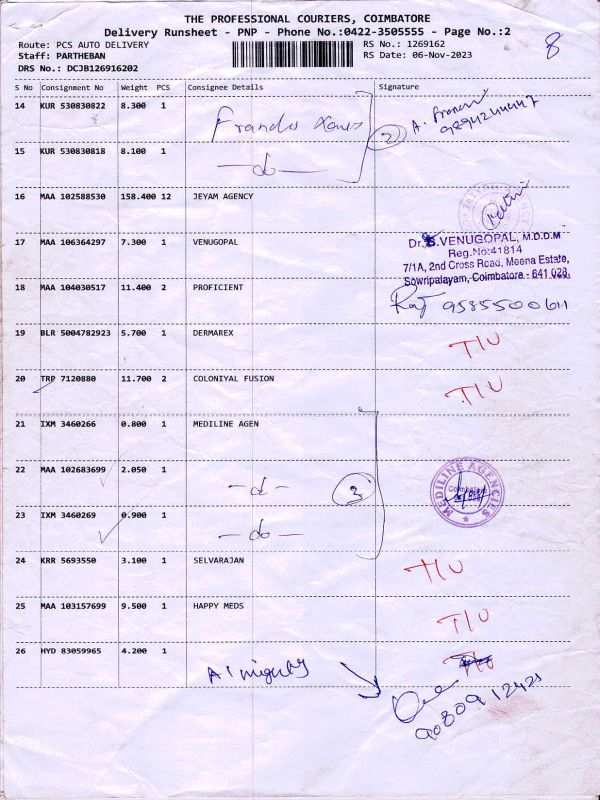 THE PROFESSIONAL COURIERS, COIMBATORE
Delivery Runsheet - PNP - Phone No.:0422-3505555 - Page No.:2
Route: PCS AUTO DELIVERY
RS No.: 1269162
Staff: PARTHEBAN
RS Date: 06-Nov-2023
DRS No.: DCJB126916202
8
S No Consignment No Weight PCS Consignee Details Signature
14 KUR 530830822 8.300 1 Francis
2
A.
15 KUR 530830818 8.100 1 -do-
16 MAA 102588530 158.400 12 JEYAM AGENCY
17 MAA 106364297 7.300 1 VENUGOPAL
Dr.S.VENUGOPAL, M.D.D.M
Reg.No:41814
7/1A, 2nd Cross Road, Meena Estate,
Sowripalayam, Coimbatore - 641 028.
18 MAA 104030517 11.400 2 PROFICIENT
Raj 9585500611
19 BLR 5004782923 5.700 1 DERMAREX T/U
20 TRP 7120880 11.700 2 COLONIYAL FUSION T/U
21 IXM 3460266 0.800 1 MEDILINE AGEN
22 MAA 102683699 2.050 1 -d- 3
MEDILINE AGENCIES
Coimbatore
23 IXM 3460269 0.900 1 -do-
24 KRR 5693550 3.100 1 SELVARAJAN T/U
25 MAA 103157699 9.500 1 HAPPY MEDS T/U
26 HYD 83059965 4.200 1 Almighty T/U